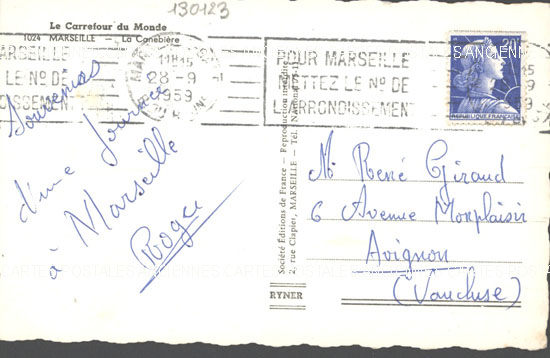 130123
Le Carrefour du Monde
1024 MARSEILLE - La Canebière
MARSEILLE
LE Nº DE
11H15
28-9
1959
POUR MARSEILLE
METTEZ LE Nº DE
L'ARRONDISSEMENT
20F
REPUBLIQUE FRANÇAISE
Souvenirs
d'une journée
à Marseille
Roger
Société Editions de France - Reproduction interdite
2, rue Clapier, MARSEILLE - Tél.
RYNER
Mr René Giraud
6 Avenue Monplaisir
Avignon
(Vaucluse)
CARTES POSTALES ANCIENNES